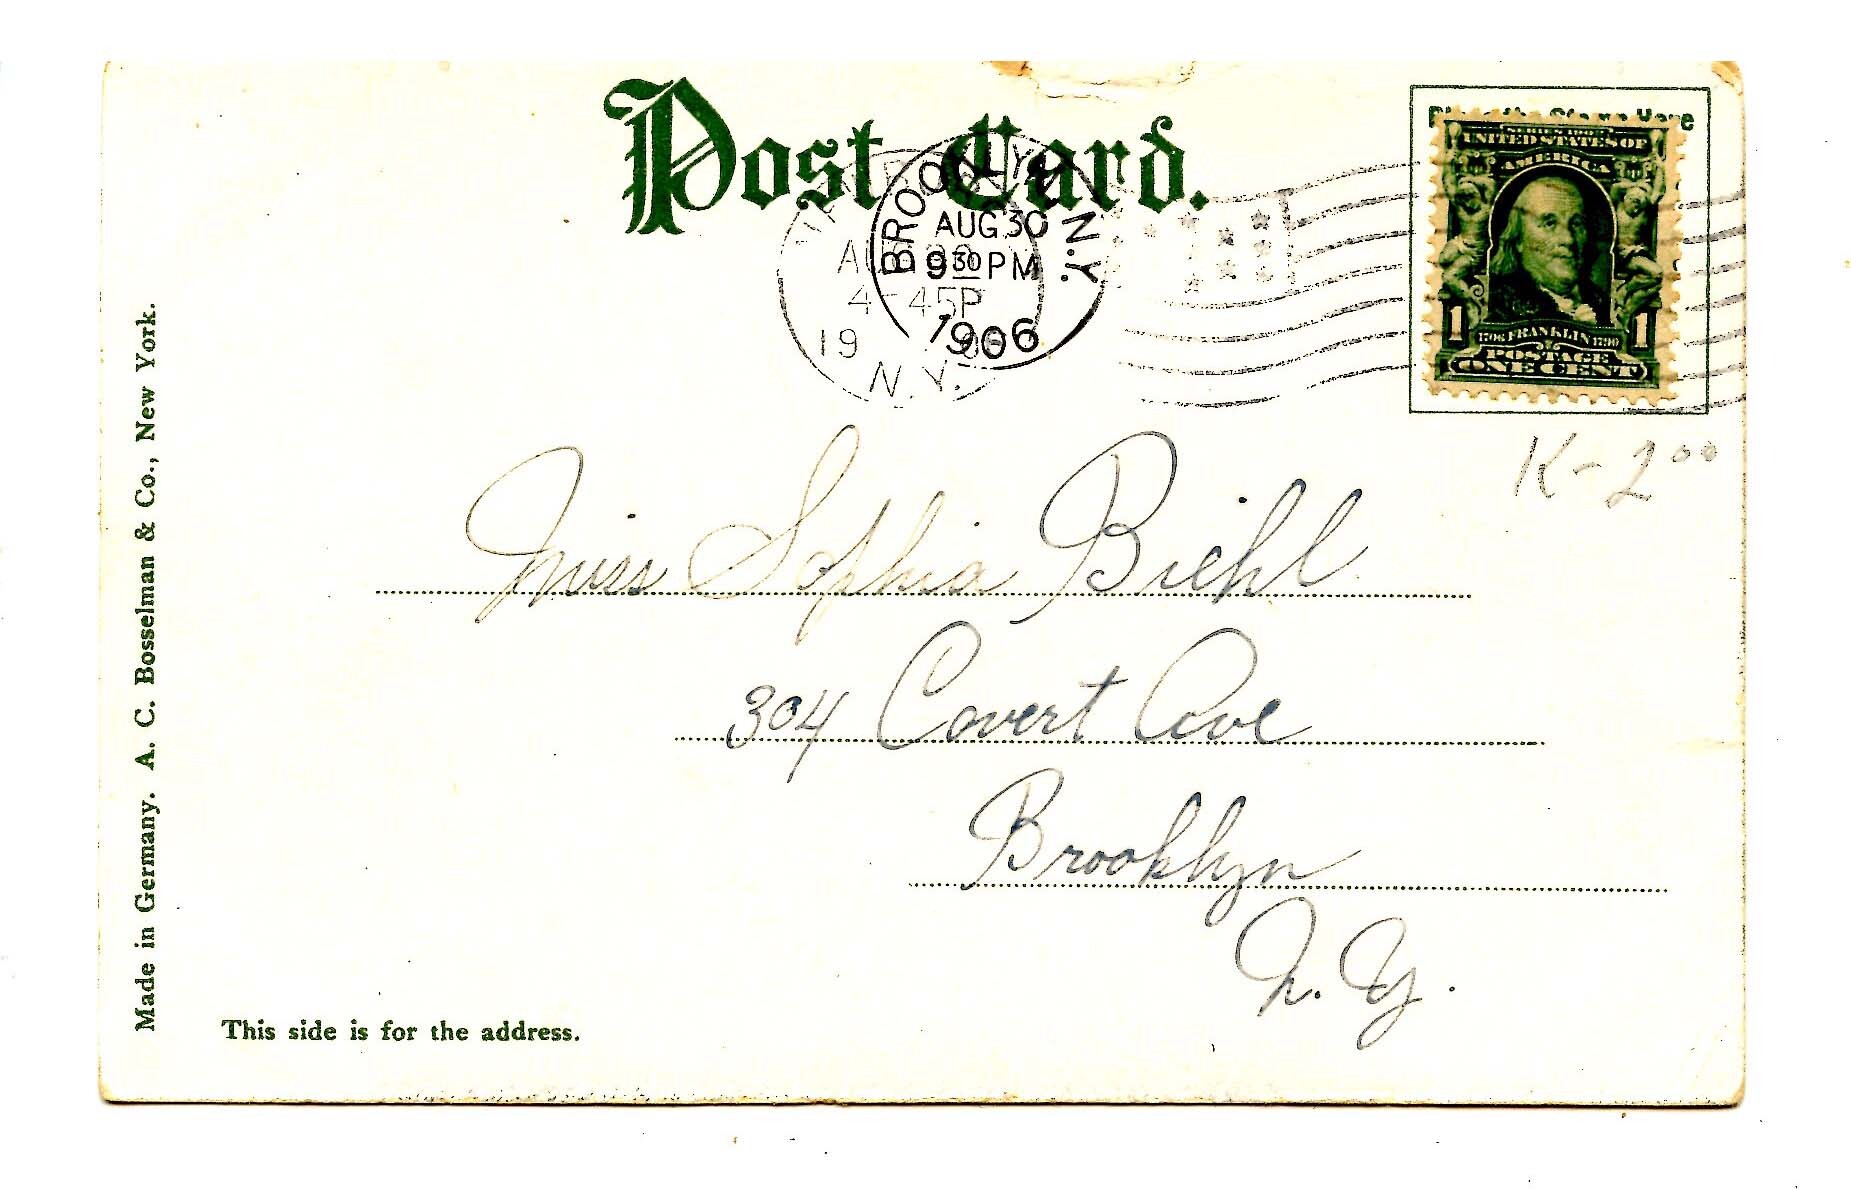 Post Card.
Here
SERIES 1902
UNITED STATES OF
AMERICA
1 1706 FRANKLIN 1790 1
POSTAGE
ONE CENT
BROOKLYN N.Y.
AUG 30
9 30 PM
1906
4-45P
19
N.Y.
K-2.00
Miss Sophia Biehl
304 Covert Ave
Brooklyn
N.Y.
Made in Germany. A. C. Bosselman & Co., New York.
This side is for the address.